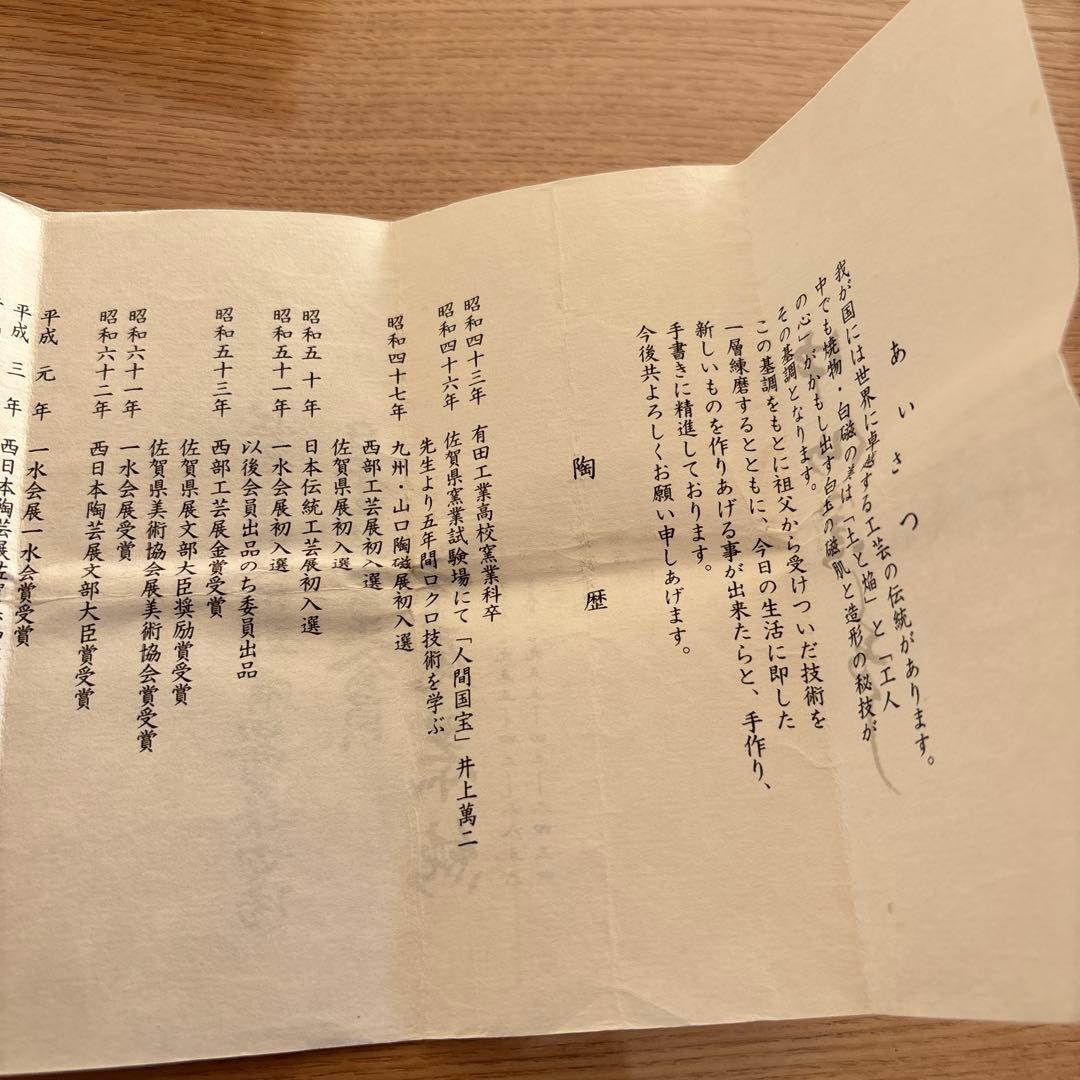 あいさつ
我が国には世界に卓越する工芸の伝統があります。
中でも焼物・白磁の美は「土と焔」と「工人
の心」がかもし出す白玉の磁肌と造形の秘技が
その基調となります。
この基調をもとに祖父から受けついだ技術を
一層練磨するとともに、今日の生活に即した
新しいものを作りあげる事が出来たらと、手作り、
手書きに精進しております。
今後共よろしくお願い申しあげます。
陶歴
昭和四十三年 有田工業高校窯業科卒
昭和四十六年 佐賀県窯業試験場にて「人間国宝」井上萬二
先生より五年間ロクロ技術を学ぶ
昭和四十七年 九州・山口陶磁展初入選
西部工芸展初入選
佐賀県展初入選
昭和五十年 日本伝統工芸展初入選
昭和五十一年 一水会展初入選
以後会員出品のち委員出品
昭和五十三年 西部工芸展金賞受賞
佐賀県展文部大臣奨励賞受賞
佐賀県美術協会展美術協会賞受賞
昭和六十一年 一水会展受賞
昭和六十二年 西日本陶芸展文部大臣賞受賞
平成元年 一水会展一水会賞受賞
平成三年 西日本陶芸展